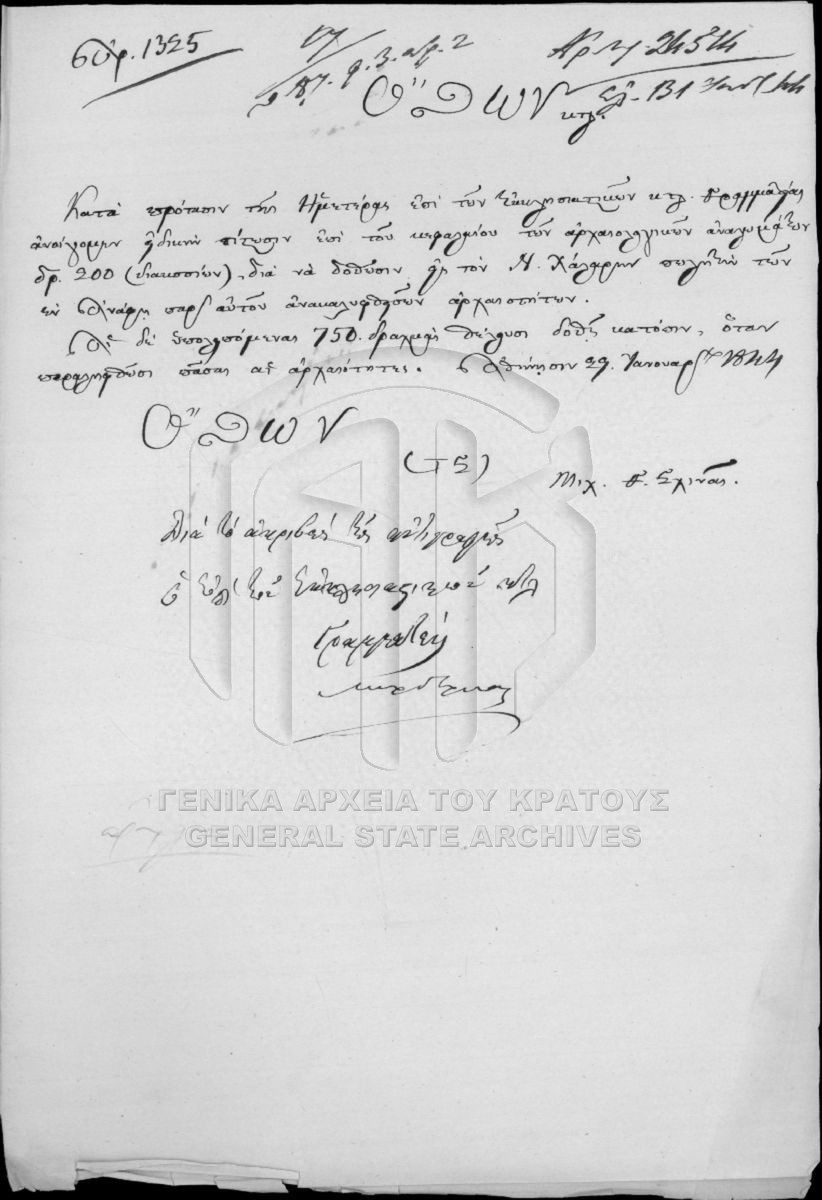 Αρ. 1325
Ὄθων
κτλ.
Κατὰ πρότασιν τῆς Ἡμετέρας ἐπὶ τῶν Ἐκκλησιαστικῶν κτλ. Γραμματείας
ἀνοίγομεν εἰδικὴν πίστωσιν ἐπὶ τοῦ κεφαλαίου τῶν ἀρχαιολογικῶν ἀναλωμάτων
δρ. 200 (διακοσίων), διὰ νὰ δοθῶσιν εἰς τὸν Ν. Χάλαρην πωλητὴν τῶν
ἐν Ἀνάφῃ παρ' αὐτοῦ ἀνακαλυφθεισῶν ἀρχαιοτήτων.
Αἱ δὲ ὑπολειπόμεναι 750. δραχμαὶ θέλουσι δοθῆ κατόπιν, ὅταν
παραληφθῶσι πᾶσαι αἱ ἀρχαιότητες. Ἀθήνησιν 29. Ἰανουαρ 1844
Ὄθων
(ΤΣ)
Μιχ. Γ. Σχινᾶς.
Διὰ τὸ ἀκριβὲς τῆς ἀντιγραφῆς
ὁ ἐπὶ τῶν Ἐκκλησιαστικῶν κτλ
Γραμματεὺς
ΓΕΝΙΚΑ ΑΡΧΕΙΑ ΤΟΥ ΚΡΑΤΟΥΣ
GENERAL STATE ARCHIVES